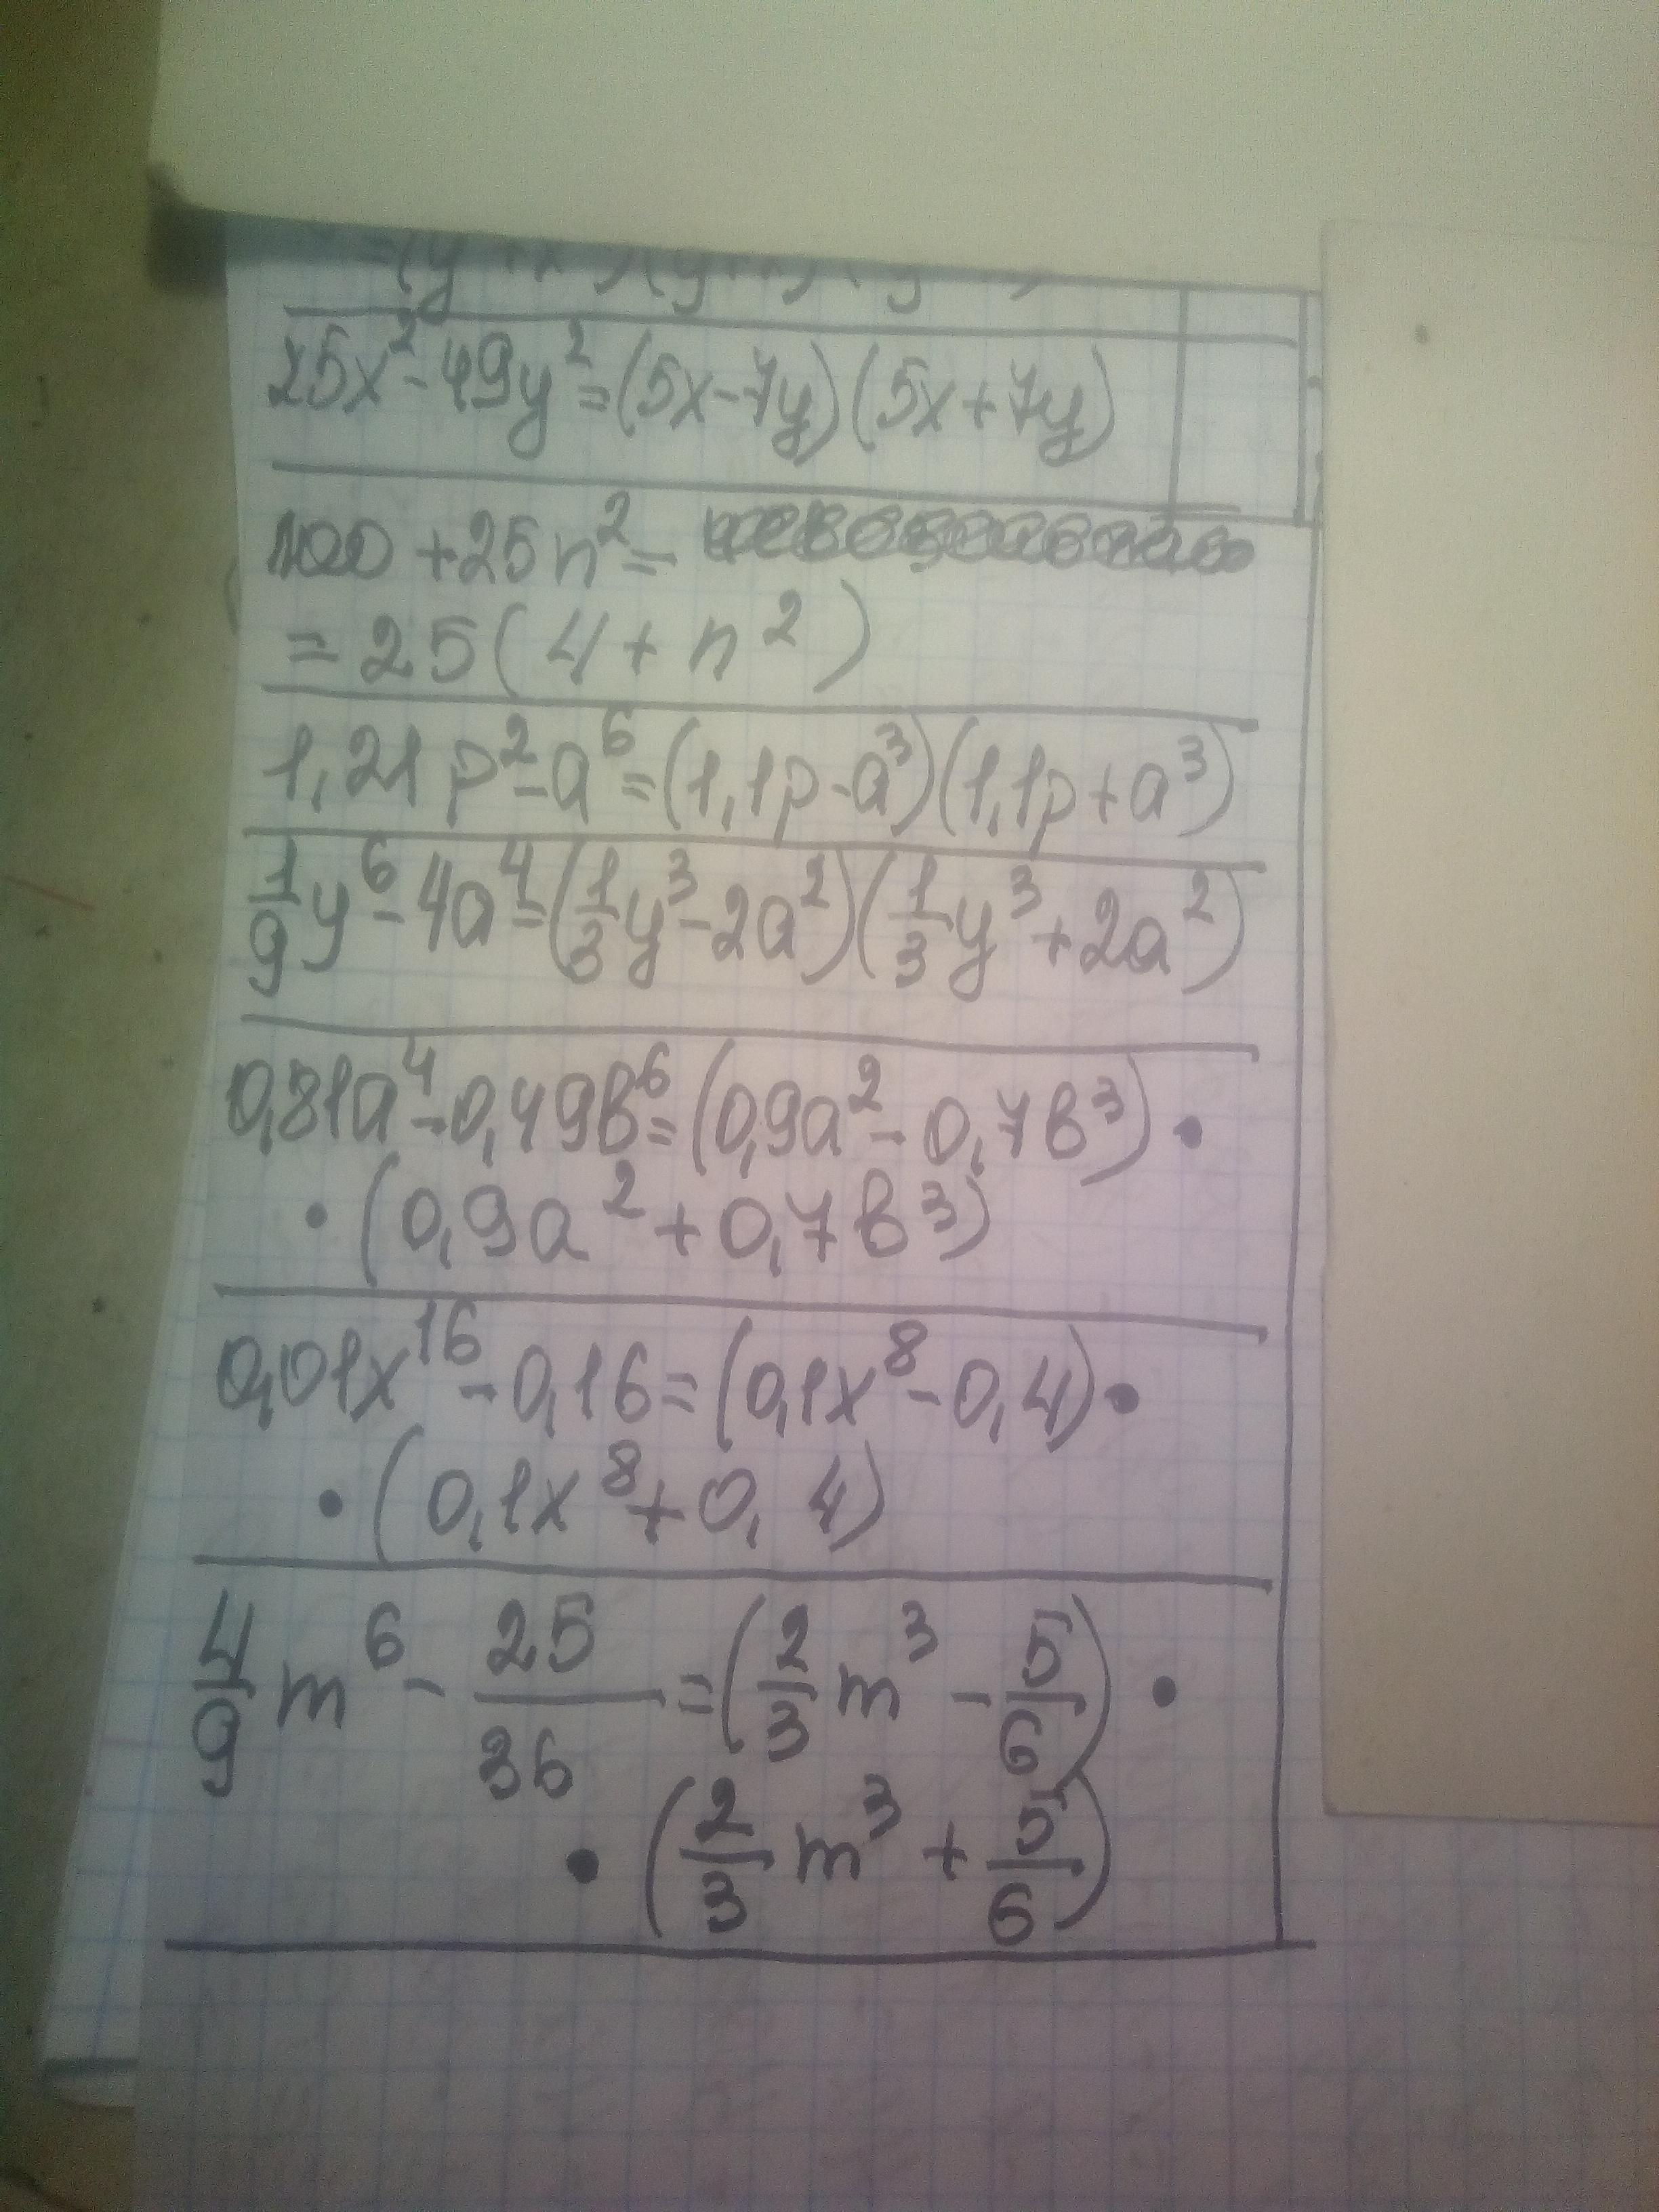 25x² - 49y² = (5x - 7y)(5x + 7y)
100 + 25n² =
= 25(4 + n²)
1,21p² - a⁶ = (1,1p - a³)(1,1p + a³)
1/9 y⁶ - 4a⁴ = (1/3 y³ - 2a²)(1/3 y³ + 2a²)
0,81a⁴ - 0,49b⁶ = (0,9a² - 0,7b³) •
• (0,9a² + 0,7b³)
0,01x¹⁶ - 0,16 = (0,1x⁸ - 0,4) •
• (0,1x⁸ + 0,4)
4/9 m⁶ - 25/36 = (2/3 m³ - 5/6) •
• (2/3 m³ + 5/6)